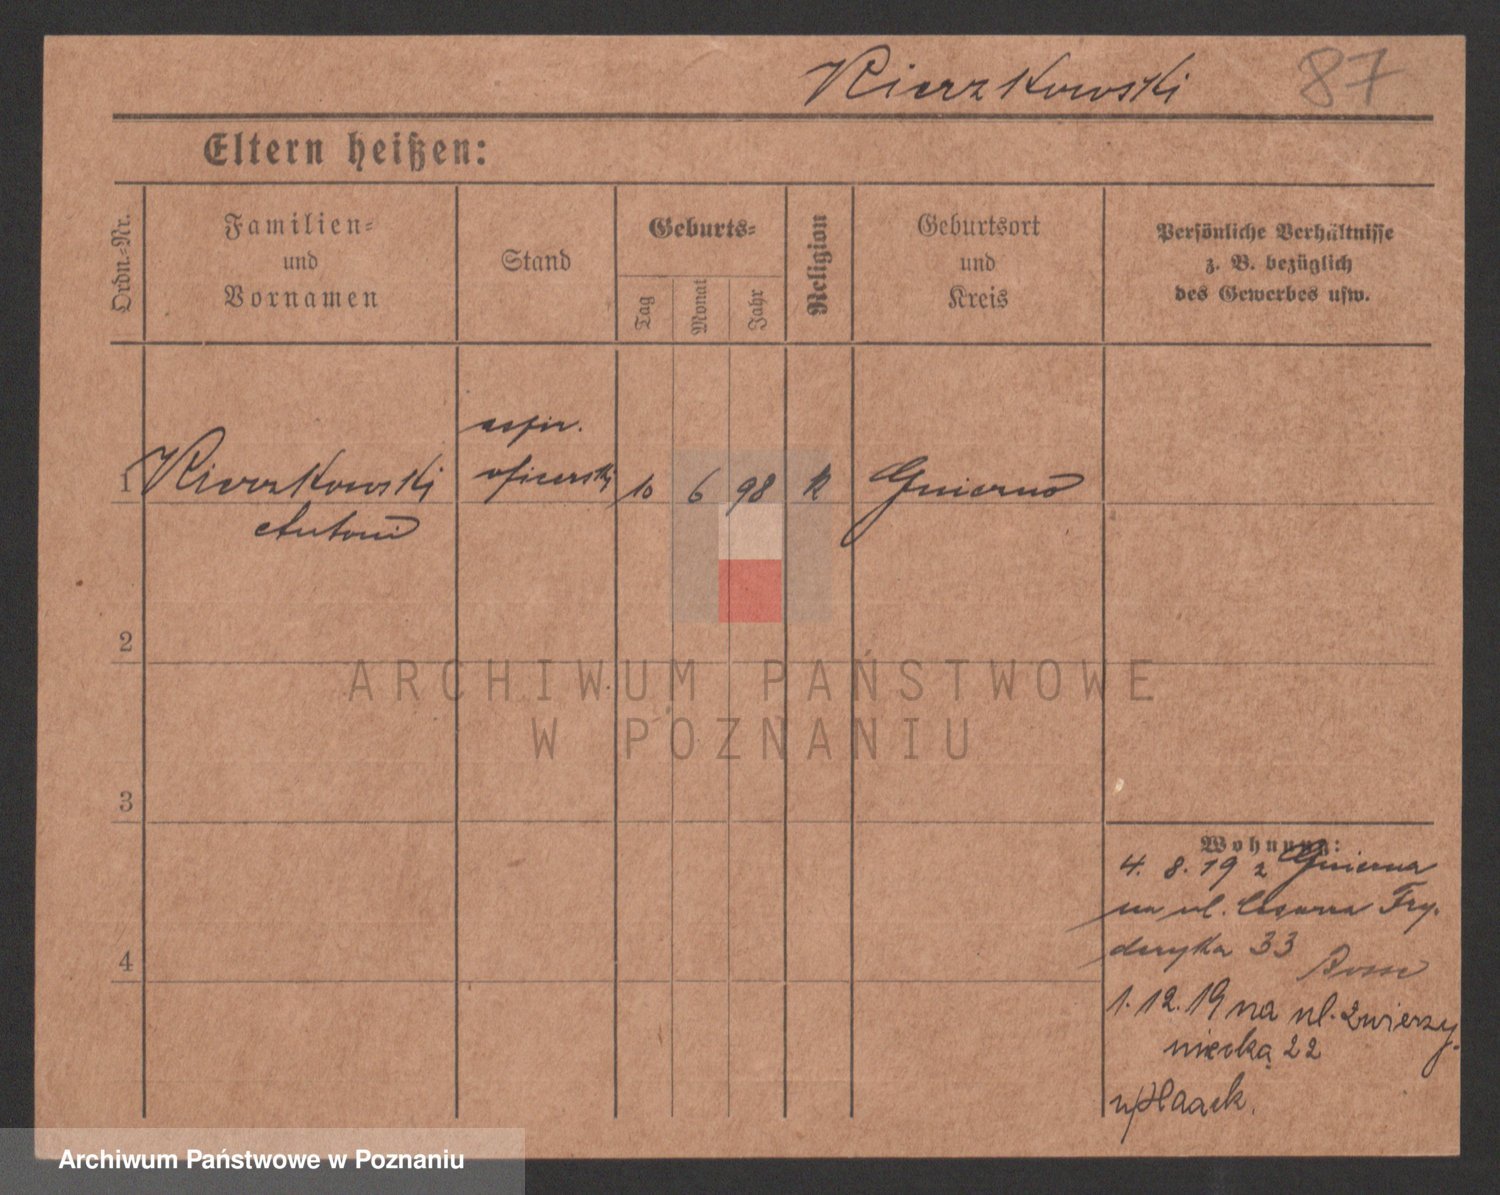 Kierzkowski 87
Eltern heißen:
Ordn.-Nr.
Familien-
und
Vornamen
Stand
Geburts-
Tag
Monat
Jahr
Religion
Geburtsort
und
Kreis
Persönliche Verhältnisse
z. B. bezüglich
des Gewerbes usw.
1 Kierzkowski
Antoni
aspir.
oficerski
10 6 98 K
2
3
4
Wohnung:
4. 8. 19 z
na ul. Cesarza Fry.
deryka 33
1. 12. 19 na ul. Zwierzy.
niecką 22
u/Haack.
ARCHIWUM PAŃSTWOWE
W POZNANIU
Archiwum Państwowe w Poznaniu